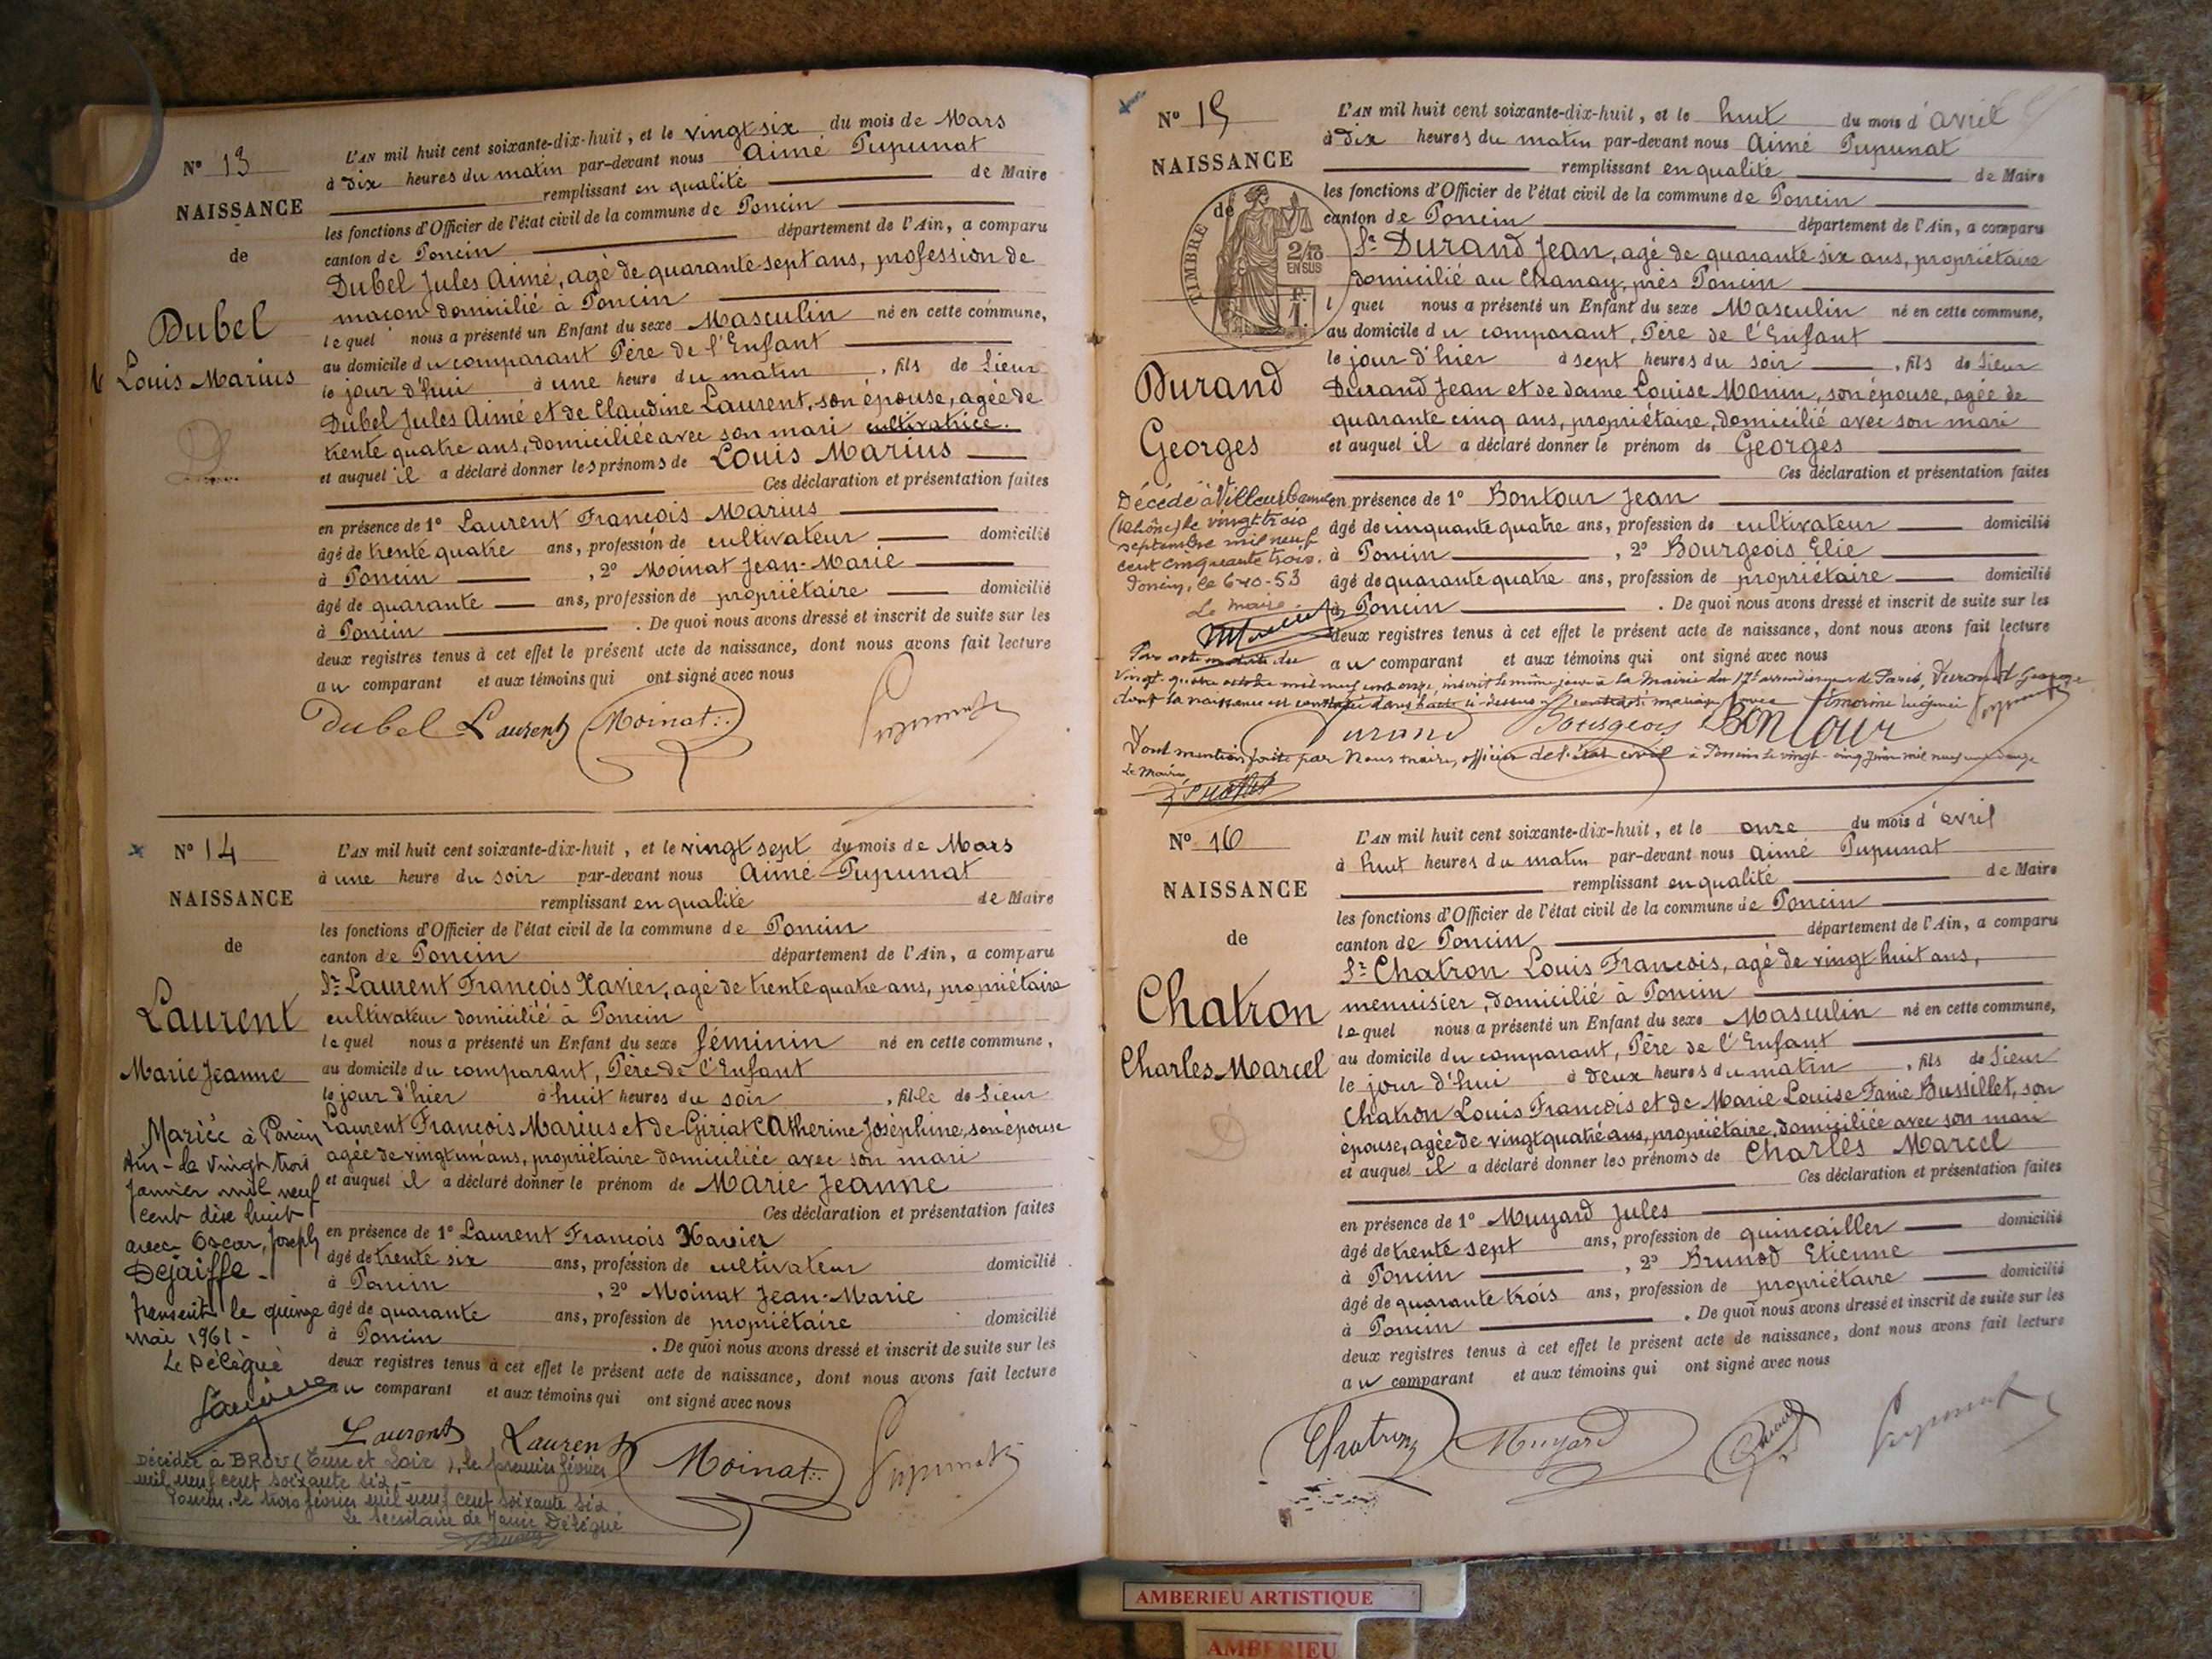 N° 13
NAISSANCE
de
Dubel
Louis Marius
L'AN mil huit cent soixante-dix-huit, et le vingt six du mois de Mars
à dix heures du matin par-devant nous Aimé Pupunat
remplissant en qualité de Maire
les fonctions d'Officier de l'état civil de la commune de Poncin
canton de Poncin département de l'Ain, a comparu
Dubel Jules Aimé, agé de quarante sept ans, profession de
maçon domicilié à Poncin
lequel nous a présenté un Enfant du sexe Masculin né en cette commune,
au domicile du comparant Père de l'Enfant
le jour d'hui à une heure du matin, fils de Sieur
Dubel Jules Aimé et de Claudine Laurent, son épouse, agée de
trente quatre ans, domiciliée avec son mari cultivatrice.
et auquel il a déclaré donner les prénoms de Louis Marius
Ces déclaration et présentation faites
en présence de 1° Laurent François Marius
âgé de trente quatre ans, profession de cultivateur domicilié
à Poncin, 2° Moinat Jean-Marie
âgé de quarante ans, profession de propriétaire domicilié
à Poncin. De quoi nous avons dressé et inscrit de suite sur les
deux registres tenus à cet effet le présent acte de naissance, dont nous avons fait lecture
au comparant et aux témoins qui ont signé avec nous
Dubel Laurent Moinat Pupunat
N° 14
NAISSANCE
de
Laurent
Marie Jeanne
Mariée à Poncin
Ain - le vingt trois
Janvier mil neuf
cent dix huit
avec Oscar, Joseph
Dejaiffe -
transcrit le quinze
mai 1961 -
Le Délégué
L'AN mil huit cent soixante-dix-huit, et le vingt sept du mois de Mars
à une heure du soir par-devant nous Aimé Pupunat
remplissant en qualité de Maire
les fonctions d'Officier de l'état civil de la commune de Poncin
canton de Poncin département de l'Ain, a comparu
Sr Laurent François Xavier, agé de trente quatre ans, propriétaire
cultivateur domicilié à Poncin
lequel nous a présenté un Enfant du sexe féminin né en cette commune,
au domicile du comparant, Père de l'Enfant
le jour d'hier à huit heures du soir, fille de Sieur
Laurent François Marius et de Giriat Catherine Joséphine, son épouse
agée de vingt un ans, propriétaire domiciliée avec son mari
et auquel il a déclaré donner le prénom de Marie Jeanne
Ces déclaration et présentation faites
en présence de 1° Laurent François Xavier
âgé de trente six ans, profession de cultivateur domicilié
à Poncin, 2° Moinat Jean-Marie
âgé de quarante ans, profession de propriétaire domicilié
à Poncin. De quoi nous avons dressé et inscrit de suite sur les
deux registres tenus à cet effet le présent acte de naissance, dont nous avons fait lecture
au comparant et aux témoins qui ont signé avec nous
Laurent Laurent Moinat Pupunat
Décédée à BROU (Eure et Loir), le premier février
mil neuf cent soixante six. -
Poncin, le trois février mil neuf cent soixante six
Le Secrétaire de Mairie Délégué
N° 15
NAISSANCE
de
TIMBRE
2/10
EN SUS
Durand
Georges
Décédé à Villeurbanne
(Rhône) le vingt trois
septembre mil neuf
cent cinquante trois.
Poncin, le 6-10-53
Le Maire
L'AN mil huit cent soixante-dix-huit, et le huit du mois d'avril
à dix heures du matin par-devant nous Aimé Pupunat
remplissant en qualité de Maire
les fonctions d'Officier de l'état civil de la commune de Poncin
canton de Poncin département de l'Ain, a comparu
Sr Durand Jean, agé de quarante six ans, propriétaire
domicilié au Chanay, près Poncin
lequel nous a présenté un Enfant du sexe Masculin né en cette commune,
au domicile du comparant, Père de l'Enfant
le jour d'hier à sept heures du soir, fils de Sieur
Durand Jean et de dame Louise Monin, son épouse, agée de
quarante cinq ans, propriétaire, domicilié avec son mari
et auquel il a déclaré donner le prénom de Georges
Ces déclaration et présentation faites
en présence de 1° Bontour Jean
âgé de cinquante quatre ans, profession de cultivateur domicilié
à Poncin, 2° Bourgeois Elie
âgé de quarante quatre ans, profession de propriétaire domicilié
à Poncin. De quoi nous avons dressé et inscrit de suite sur les
deux registres tenus à cet effet le présent acte de naissance, dont nous avons fait lecture
au comparant et aux témoins qui ont signé avec nous
Par acte en date du
vingt-quatre octobre mil neuf cent onze, inscrit le même jour à la Mairie du 17e arrondissement de Paris, Durand George
dont la naissance est constatée dans l'acte ci-dessus a contracté mariage avec
Durand Bourgeois Bontour Pupunat
Dont mention faite par Nous maire, officier de l'état civil à Poncin le vingt-cinq Juin mil neuf cent douze
Le Maire
N° 16
NAISSANCE
de
Chatron
Charles Marcel
L'AN mil huit cent soixante-dix-huit, et le onze du mois d'avril
à huit heures du matin par-devant nous Aimé Pupunat
remplissant en qualité de Maire
les fonctions d'Officier de l'état civil de la commune de Poncin
canton de Poncin département de l'Ain, a comparu
Sr Chatron Louis François, agé de vingt huit ans,
menuisier, domicilié à Poncin
lequel nous a présenté un Enfant du sexe Masculin né en cette commune,
au domicile du comparant, Père de l'Enfant
le jour d'hui à deux heures du matin, fils de Sieur
Chatron Louis François et de Marie Louise Fanie Bussillet, son
épouse, agée de vingt quatre ans, propriétaire, domiciliée avec son mari
et auquel il a déclaré donner les prénoms de Charles Marcel
Ces déclaration et présentation faites
en présence de 1° Muyard Jules
âgé de trente sept ans, profession de quincailler domicilié
à Poncin, 2° Brunod Etienne
âgé de quarante trois ans, profession de propriétaire domicilié
à Poncin. De quoi nous avons dressé et inscrit de suite sur les
deux registres tenus à cet effet le présent acte de naissance, dont nous avons fait lecture
au comparant et aux témoins qui ont signé avec nous
Chatron Muyard Pupunat
AMBERIEU ARTISTIQUE
AMBERIEU